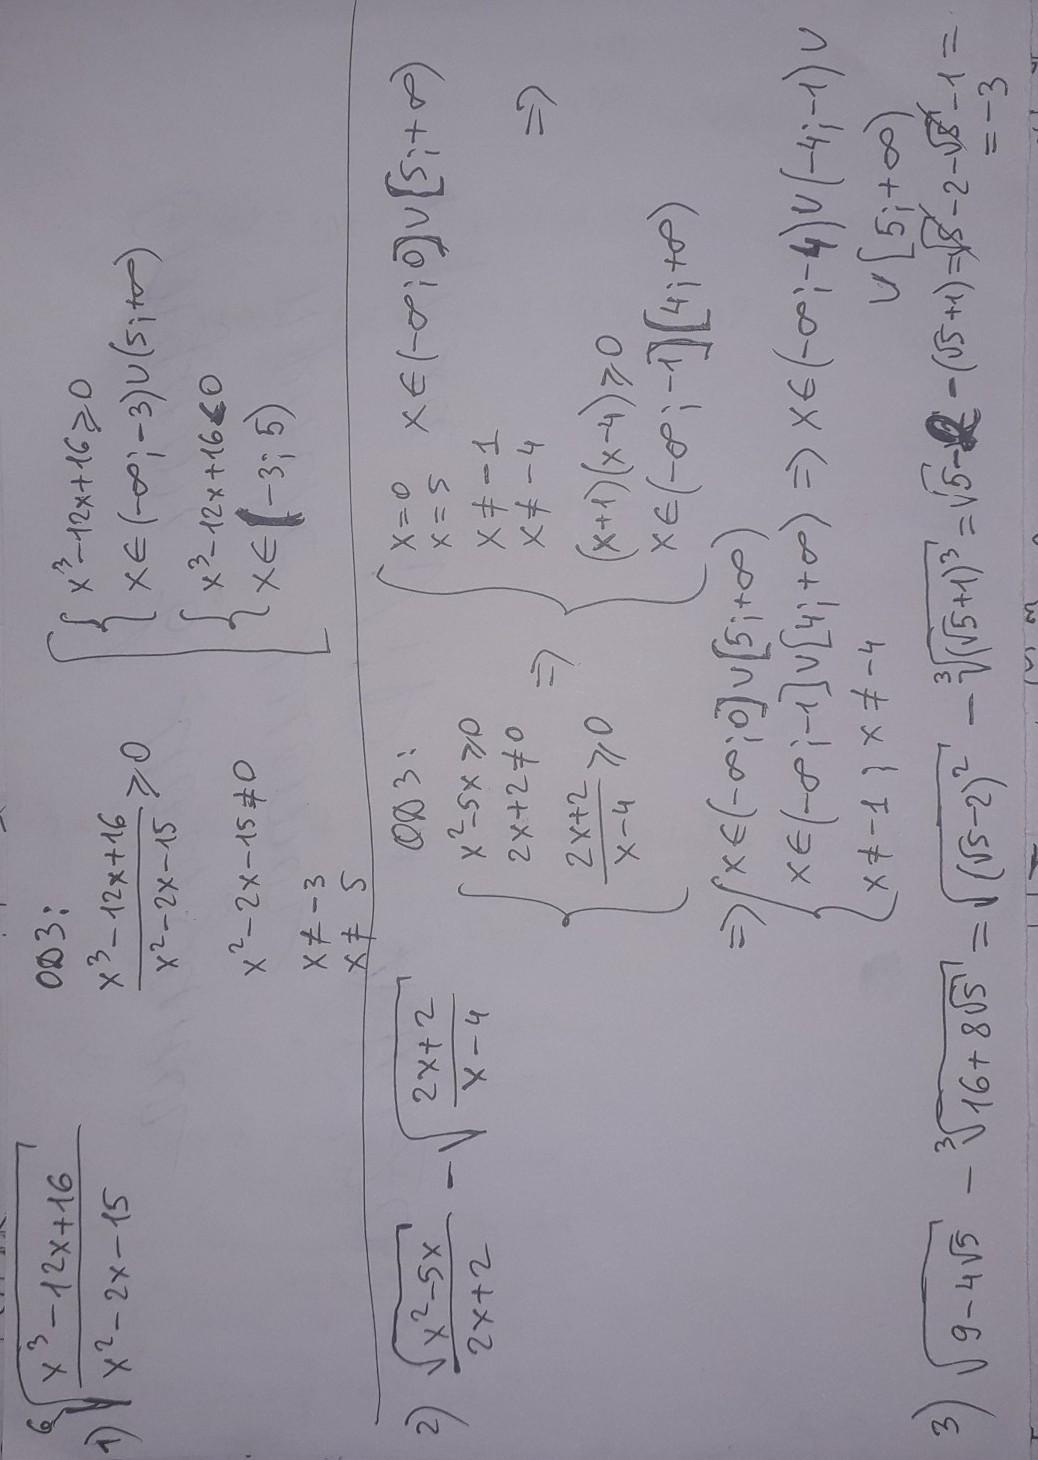 1) ⁶√((x³-12x+16)/(x²-2x-15))
ОДЗ:
(x³-12x+16)/(x²-2x-15) ⩾ 0
x²-2x-15≠0
x≠-3
x≠5
[ { x³-12x+16⩾0
x∈(-∞;-3)∪(5;+∞)
{ x³-12x+16<0
x∈(-3;5)
2) √(x²-5x)/(2x+2) - √((2x+2)/(x-4))
ОДЗ:
{ x²-5x⩾0
2x+2≠0
(2x+2)/(x-4) ⩾ 0
=>
{ x=0
x=5
x∈(-∞;0]∪[5;+∞)
x≠-1
x≠-4
=>
(x+1)(x-4)⩾0
x∈(-∞;-1][4;+∞)
=> { x∈(-∞;0]∪[5;+∞)
x∈(-∞;-1]∪[4;+∞) => x∈(-∞;-4)∪(-4;-1)∪
∪[5;+∞)
x≠-1; x≠-4
3) √(9-4√5) - ³√(16+8√5) = √((√5-2)²) - ³√((√5+1)³) = √5-2-(√5+1)=√5-2-√5-1=
=-3